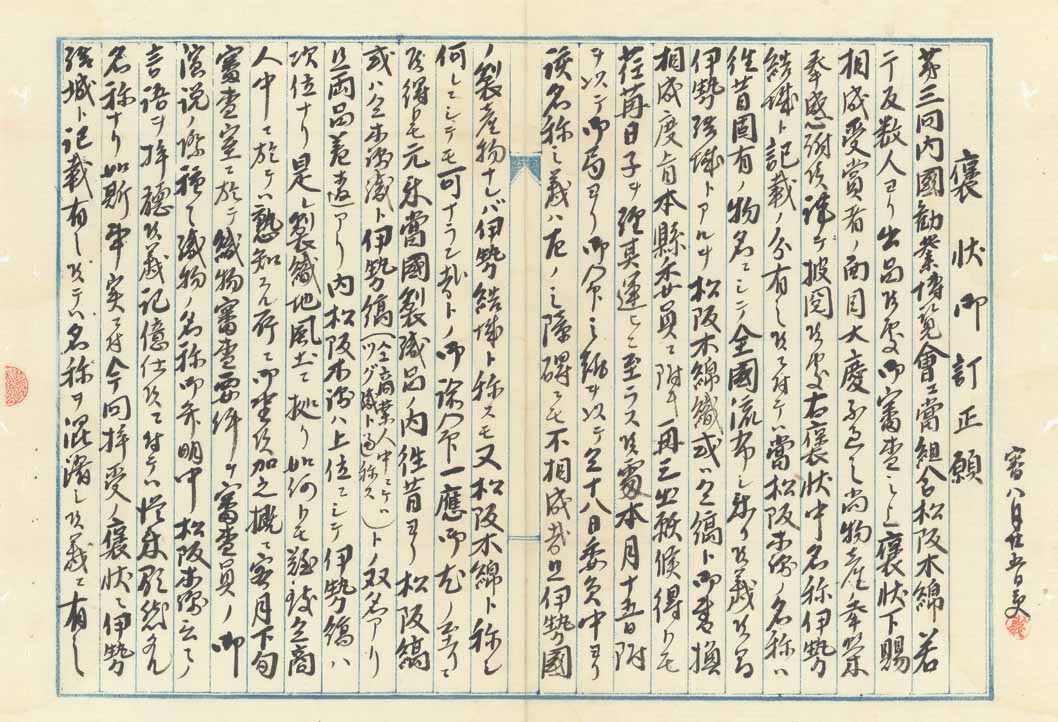 審八月廿五日受
褒状御訂正願
第三回内國勧業博覧會エ當組合松阪木綿若
干反数人ヨリ出品候處御審査之上褒状下賜
相成受賞者ノ面目大慶 尚物産 奉
奉感謝候 披閲候處右褒状中名称伊勢
結城ト記載ノ分有之候ニ付テハ當松阪木綿ノ名称ハ
徃昔固有ノ物名ニシテ全國流布シ来リ候義
伊勢結城トアルヲ松阪木綿織或ハ仝縞ト御書換
相成度旨本縣委員ニ附キ再三出 候得トモ
荏苒日子ヲ経其運ヒニ至ラス候處本月十五日附
ヲ以テ御局ヨリ御 之 ヲ以テ仝十八日委員中ヨリ
該名称之義ハ左ノミ障碍ニモ不相成哉且伊勢國
ノ製産物ナレバ伊勢結城ト称スモ又松阪木綿ト称シ
何レニシテモ可ナラン哉トノ御 一應御尤ノ ニ
候得トモ元来當國製織品ノ内徃昔ヨリ松阪縞
或ハ仝木綿織ト伊勢縞(仝商業人中ニテハツグ織ト通称ス)トノ双名アリ
且両品差違アリ内松阪木綿ハ上位ニシテ伊勢縞ハ
次位ナリ是レ製織地風土ニ拠リ如何トモ 仝商
人中ニ於テハ熟知スル所ニ御座候加之概ニ客月下旬
審査室ニ於テ織物審査要件ヲ審査員ノ御
演説ノ際種々織物ノ名称御弁明中松阪木綿云々
言語ヲ拝聴候義記憶仕候ニ付テハ従来
名称ナリ如斯事実ニ付今回拝受ノ褒状ニ伊勢
結城ト記載有之候テハ名称ヲ混淆シ候義ニ有之